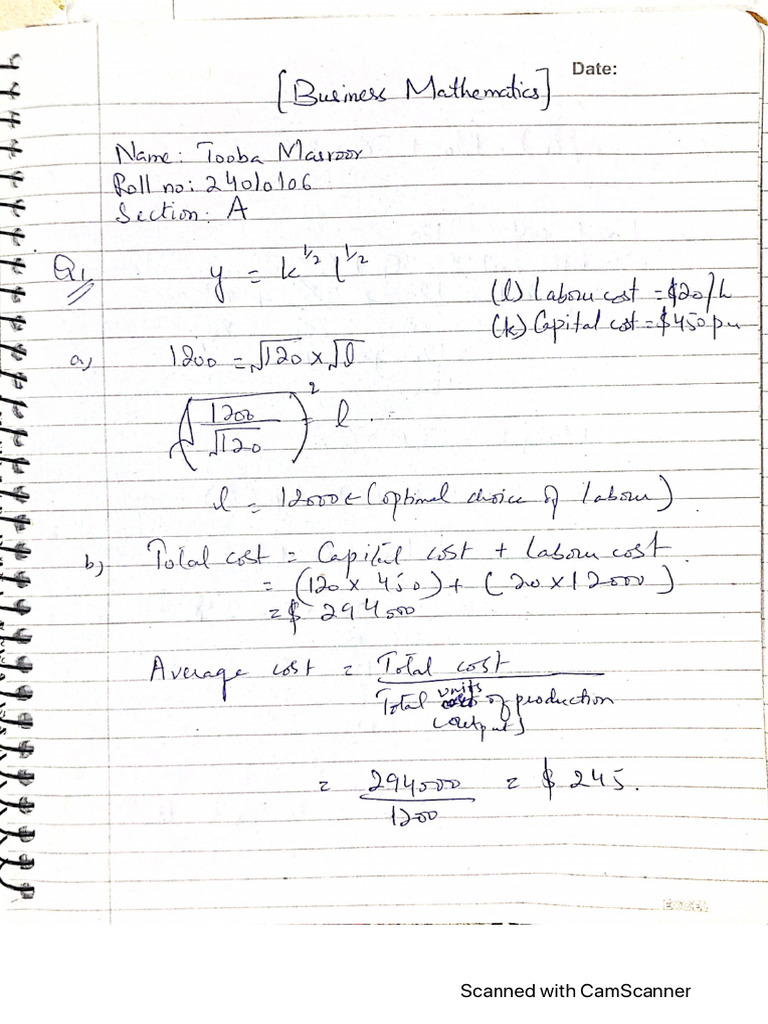 Date:
[Business Mathematics]
Name: Tooba Masroor
Roll no: 24010106
Section: A
Q1, y = k^1/2 l^1/2
(l) Labour cost = $20/h
(k) Capital cost = $450 pu
a) 1200 = √120 × √l
(√ 1200 / √120)² = l
l = 12000 ← (optimal choice of labour)
b) Total cost = Capital cost + Labour cost.
= (120 × 450) + (20 × 12000)
= $ 294000
Average cost = Total cost
Total units of production
(output)
= 294000 / 1200 = $ 245.
EXCEL
Scanned with CamScanner